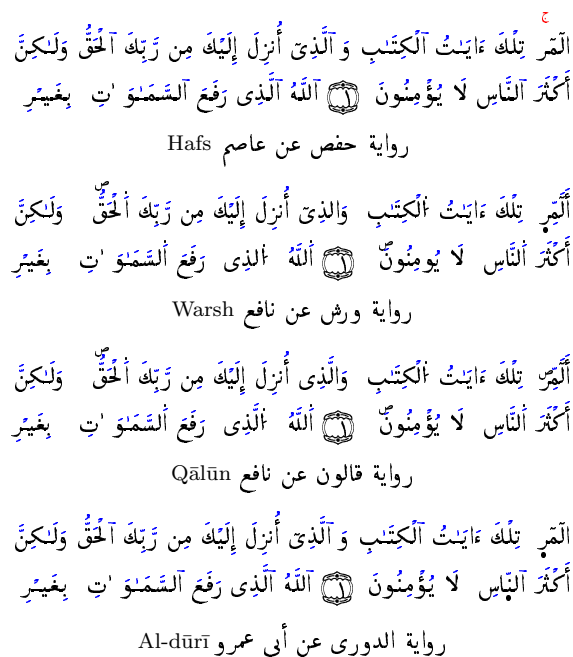 الٓمٓرۚ تِلْكَ ءَايَـٰتُ ٱلْكِتَـٰبِ وَٱلَّذِىٓ أُنزِلَ إِلَيْكَ مِن رَّبِّكَ ٱلْحَقُّ وَلَـٰكِنَّ
أَكْثَرَ ٱلنَّاسِ لَا يُؤْمِنُونَ ١ ٱللَّهُ ٱلَّذِى رَفَعَ ٱلسَّمَـٰوَٰتِ بِغَيْرِ
رواية حفص عن عاصم Hafs
أَلَٓمِّٓرۭ تِلْكَ ءَايَـٰتُ اُ۬لْكِتَـٰبِ وَالذِىٓ أُنزِلَ إِلَيْكَ مِن رَّبِّكَ اَ۬لْحَقُّۖ وَلَـٰكِنَّ
أَكْثَرَ اَ۬لنَّاسِ لَا يُومِنُونَۖ ١ اَ۬للَّهُ اُ۬لذِى رَفَعَ اَ۬لسَّمَـٰوَٰتِ بِغَيْرِ
رواية ورش عن نافع Warsh
أَلَٓمِّٓرۖ تِلْكَ ءَايَـٰتُ اُ۬لْكِتَـٰبِ وَالَّذِى أُنزِلَ إِلَيْكَ مِن رَّبِّكَ اَ۬لْحَقُّۖ وَلَـٰكِنَّ
أَكْثَرَ اَ۬لنَّاسِ لَا يُؤْمِنُونَۖ ١ اَ۬للَّهُ اُ۬لَّذِى رَفَعَ اَ۬لسَّمَـٰوَٰتِ بِغَيْرِ
رواية قالون عن نافع Qālūn
الٓمٓر تِلْكَ ءَايَـٰتُ ٱلْكِتَـٰبِ وَٱلَّذِىٓ أُنزِلَ إِلَيْكَ مِن رَّبِّكَ ٱلْحَقُّ وَلَـٰكِنَّ
أَكْثَرَ ٱلنّاسِ لَا يُؤْمِنُونَ ١ ٱللَّهُ ٱلَّذِى رَفَعَ ٱلسَّمَـٰوَٰتِ بِغَيْرِ
رواية الدورى عن أبى عمرو Al-dūrī